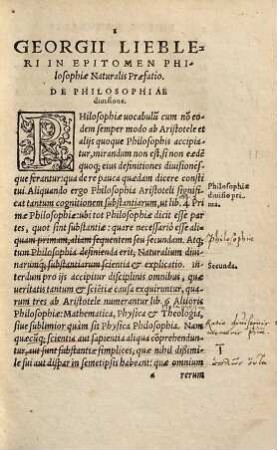 GEORGII LIEBLE-
RI IN EPITOMEN PHI-
losophiæ Naturalis Præfatio.
DE PHILOSOPHIAE
diuisione.
PHilosophiæ uocabulū cum nō eo-
dem semper modo ab Aristotele et
alijs quoque Philosophis accipia-
tur, mirandum non est, si non eædē
quoq; eius definitiones diuisiones-
que ferantur: qua de re pauca quædam dicere consti
tui. Aliquando ergo Philosophia Aristoteli signifi
cat tantum cognitionem substantiarum, ut lib. 4 Pri
mæ Philosophiæ: ubi tot Philosophiæ dicit esse par
tes, quot sunt substantiæ: quare necessario esse ali-
quam primam, aliam sequentem seu secundam. Atq;
tum Philosophia definienda erit, Naturalium diui-
narumq; substantiarum scientia & explicatio. in-
terdum pro ijs accipitur disciplinis omnibus, quæ
ueritatis tantum & scientiæ causa exquiruntur, qua-
rum tres ab Aristotele numerantur lib. 6. Altioris
Philosophiæ: Mathematica, Physica & Theologia,
siue sublimior quàm sit Physica Philosophia. Nam
quæcūq; scientia aut sapientia aliqua cōprehendun-
tur, aut sunt substantiæ simplices, quæ nihil dißimi-
le sui aut dispar in semetipsis habeant: quæ omnium
a rerum
Philosophiæ
diuisio pri-
ma.
Philosophiæ
Secunda.